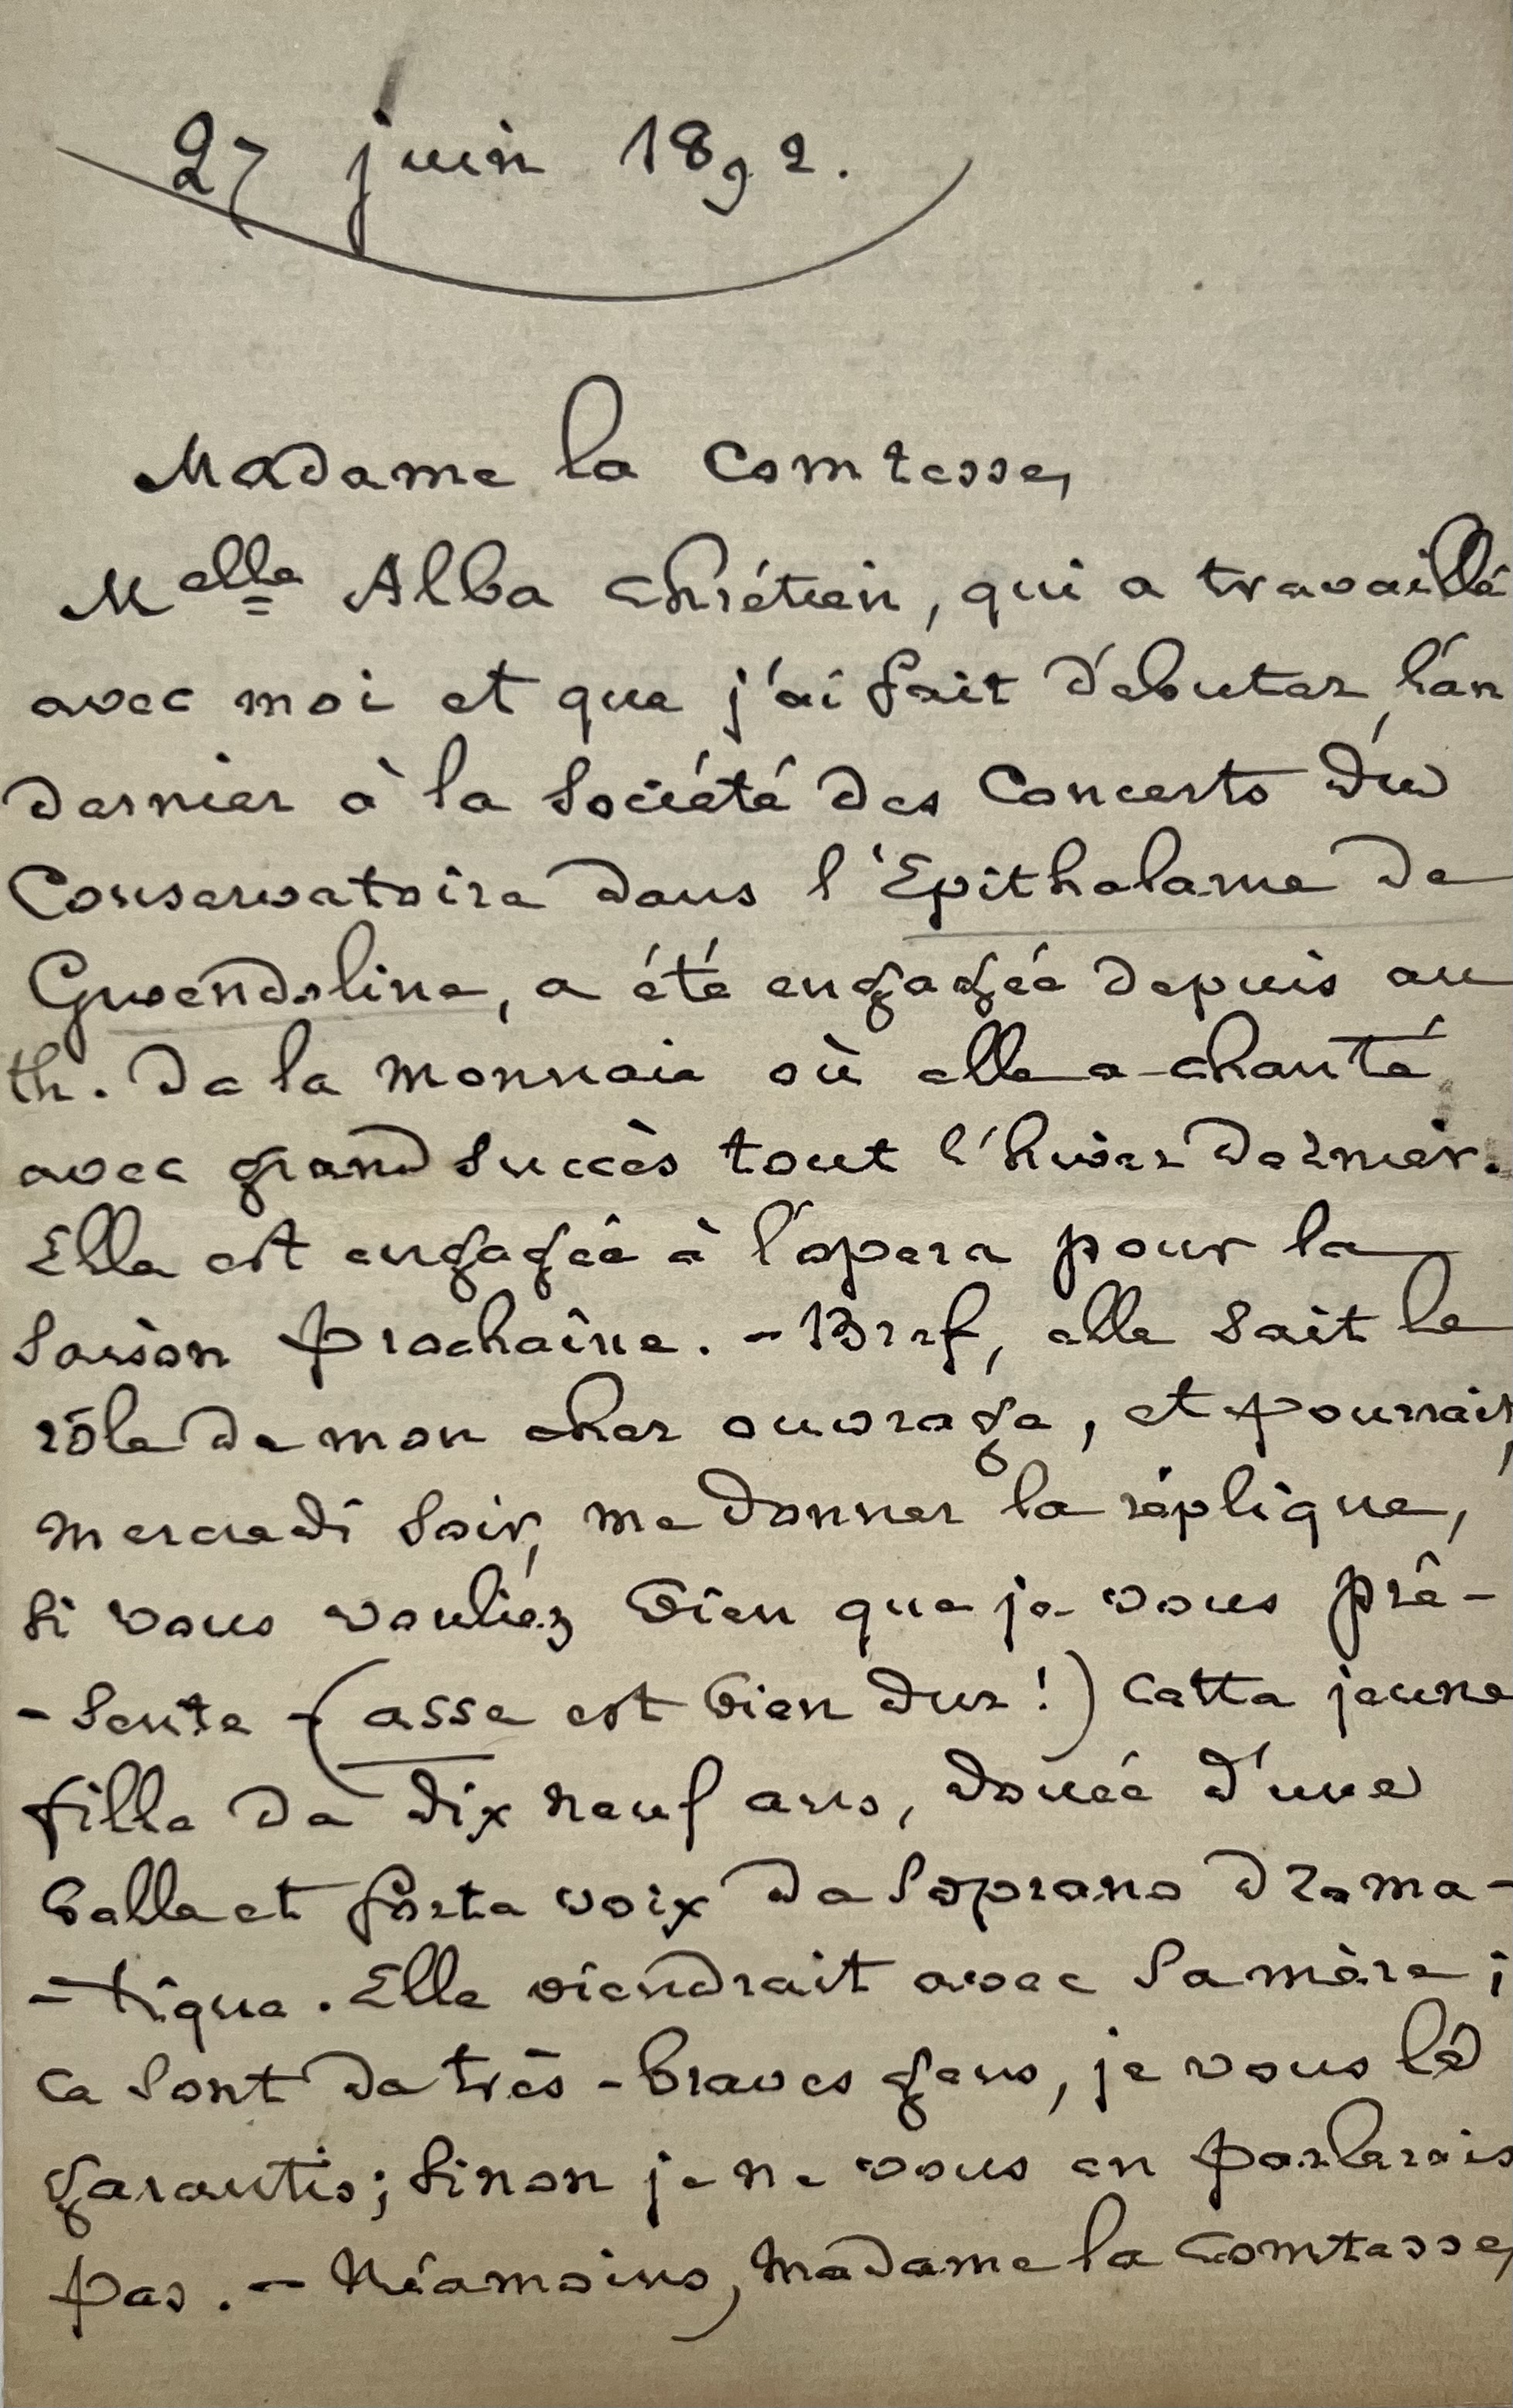 27 juin 1892.
Madame la Comtesse,
Melle Alba Chrétien, qui a travaillé
avec moi et que j'ai fait débuter, l'an
dernier à la Société des Concerts du
Conservatoire dans l'Epithalame de
Gwendoline, a été engagée depuis au
th. de la monnaie où elle a chanté
avec grand succès tout l'hiver dernier.
Elle est engagée à l'opera pour la
Saison prochaine. - Bref, elle sait le
rôle de mon cher ouvrage, et pourrait,
mercredi soir, me donner la réplique,
si vous vouliez bien que je vous pré-
- sente - (asse est bien dur !) cette jeune
fille de dix neuf ans, douée d'une
belle et forte voix de Soprano drama-
- tique. Elle viendrait avec sa mère ;
ce sont de très - braves gens, je vous le
garantis ; sinon je ne vous en parlerais
pas. - Néamoins, Madame la Comtesse,